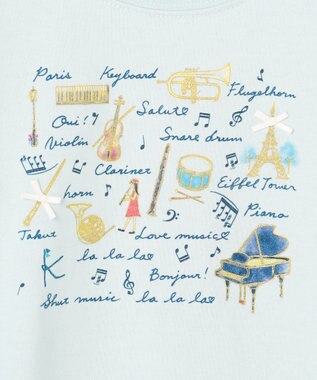 Paris Keyboard Flugelhorn
Oui! Salut
Violin Snare drum
Clarinet
horn Eiffel Tower
Piano
Takut Love music
K la la la
Bonjour!
Shut music la la la